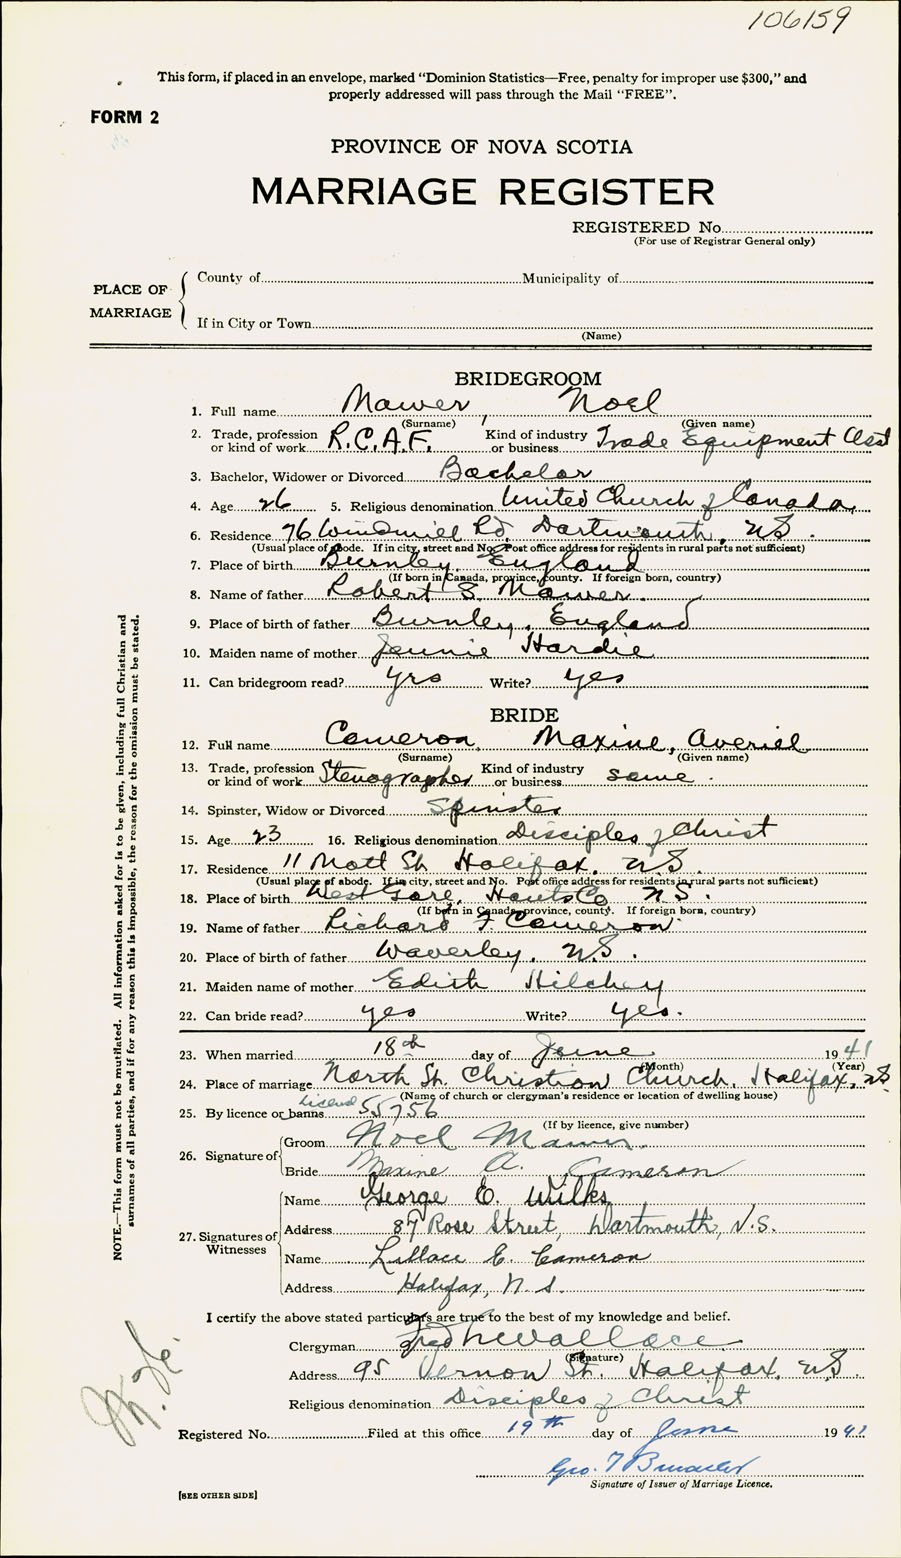 106159
This form, if placed in an envelope, marked "Dominion Statistics—Free, penalty for improper use $300," and
properly addressed will pass through the Mail "FREE".
FORM 2
PROVINCE OF NOVA SCOTIA
MARRIAGE REGISTER
REGISTERED No.
(For use of Registrar General only)
PLACE OF MARRIAGE
County of Municipality of
If in City or Town
(Name)
BRIDEGROOM
1. Full name Mawer, Noel
(Surname) (Given name)
2. Trade, profession or kind of work R.C.A.F. Kind of industry or business Trade Equipment Asst
3. Bachelor, Widower or Divorced Bachelor
4. Age 26 5. Religious denomination United Church of Canada
6. Residence 76 Windmill Rd, Dartmouth, N.S.
(Usual place of abode. If in city, street and No. Post office address for residents in rural parts not sufficient)
7. Place of birth Burnley, England
(If born in Canada, province, county. If foreign born, country)
8. Name of father Robert S. Mawer.
9. Place of birth of father Burnley, England
10. Maiden name of mother Jennie Hardie
11. Can bridegroom read? yes Write? yes
BRIDE
12. Full name Cameron, Maxine, Averiel
(Surname) (Given name)
13. Trade, profession or kind of work Stenographer Kind of industry or business same.
14. Spinster, Widow or Divorced Spinster
15. Age 23 16. Religious denomination Disciples of Christ
17. Residence 11 Mott St. Halifax, N.S.
(Usual place of abode. If in city, street and No. Post office address for residents in rural parts not sufficient)
18. Place of birth West Gore, Hants Co N.S.
(If born in Canada, province, county. If foreign born, country)
19. Name of father Richard F. Cameron
20. Place of birth of father Waverley, N.S.
21. Maiden name of mother Edith Hilchey
22. Can bride read? yes Write? yes.
23. When married 18th day of June 1941
(Month) (Year)
24. Place of marriage North St. Christian Church, Halifax, N.S.
(Name of church or clergyman's residence or location of dwelling house)
25. By licence or banns License 55756
(If by licence, give number)
26. Signature of
Groom Noel Mawer.
Bride Maxine A. Cameron
27. Signatures of Witnesses
Name George E. Wilks
Address 87 Rose Street, Dartmouth, N.S.
Name E. Cameron
Address Halifax, N.S.
I certify the above stated particulars are true to the best of my knowledge and belief.
Clergyman Wallace
(Signature)
Address 95 Vernon St. Halifax, N.S.
Religious denomination Disciples of Christ
Registered No. Filed at this office 19th day of June 1941
Geo. T
Signature of Issuer of Marriage Licence.
[SEE OTHER SIDE]
NOTE.—This form must not be mutilated. All information asked for is to be given, including full Christian and
surnames of all parties, and if for any reason this is impossible, the reason for the omission must be stated.